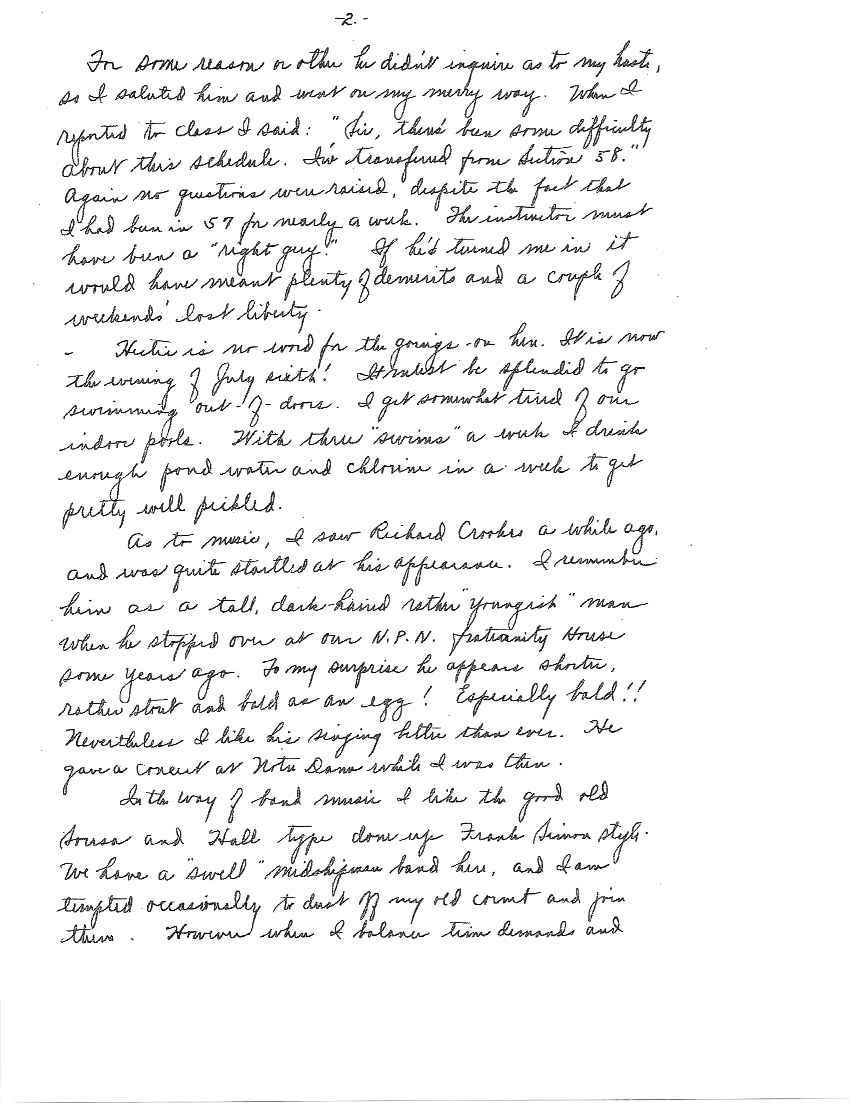 -2.-
For some reason or other he didn't inquire as to my haste,
so I saluted him and went on my merry way. When I
reported to class I said: "Sir, there's been some difficulty
about this schedule. I'm transferred from Section 58."
Again no questions were raised, despite the fact that
I had been in 57 for nearly a week. The instructor must
have been a "right guy!" If he'd turned me in it
would have meant plenty of demerits and a couple of
weekends' lost liberty.
- Hectic is no word for the goings-on here. It is now
the evening of July sixth! It must be splendid to go
swimming out-of-doors. I get somewhat tired of our
indoor pools. With three "swims" a week I drink
enough pond water and chlorine in a week to get
pretty well pickled.
As to music, I saw Richard Crooks a while ago,
and was quite startled at his appearance. I remember
him as a tall, dark-haired rather "youngish" man
when he stopped over at our N.P.N. fraternity House
some years ago. To my surprise he appears shorter,
rather stout and bald as an egg! Especially bald!!
Nevertheless I like his singing better than ever. He
gave a concert at Notre Dame while I was there.
In the way of band music I like the good old
Sousa and Hall type done up Frank Simon style.
We have a "swell" midshipman band here, and I am
tempted occasionally to dust off my old cornet and join
them. However when I balance time demands and